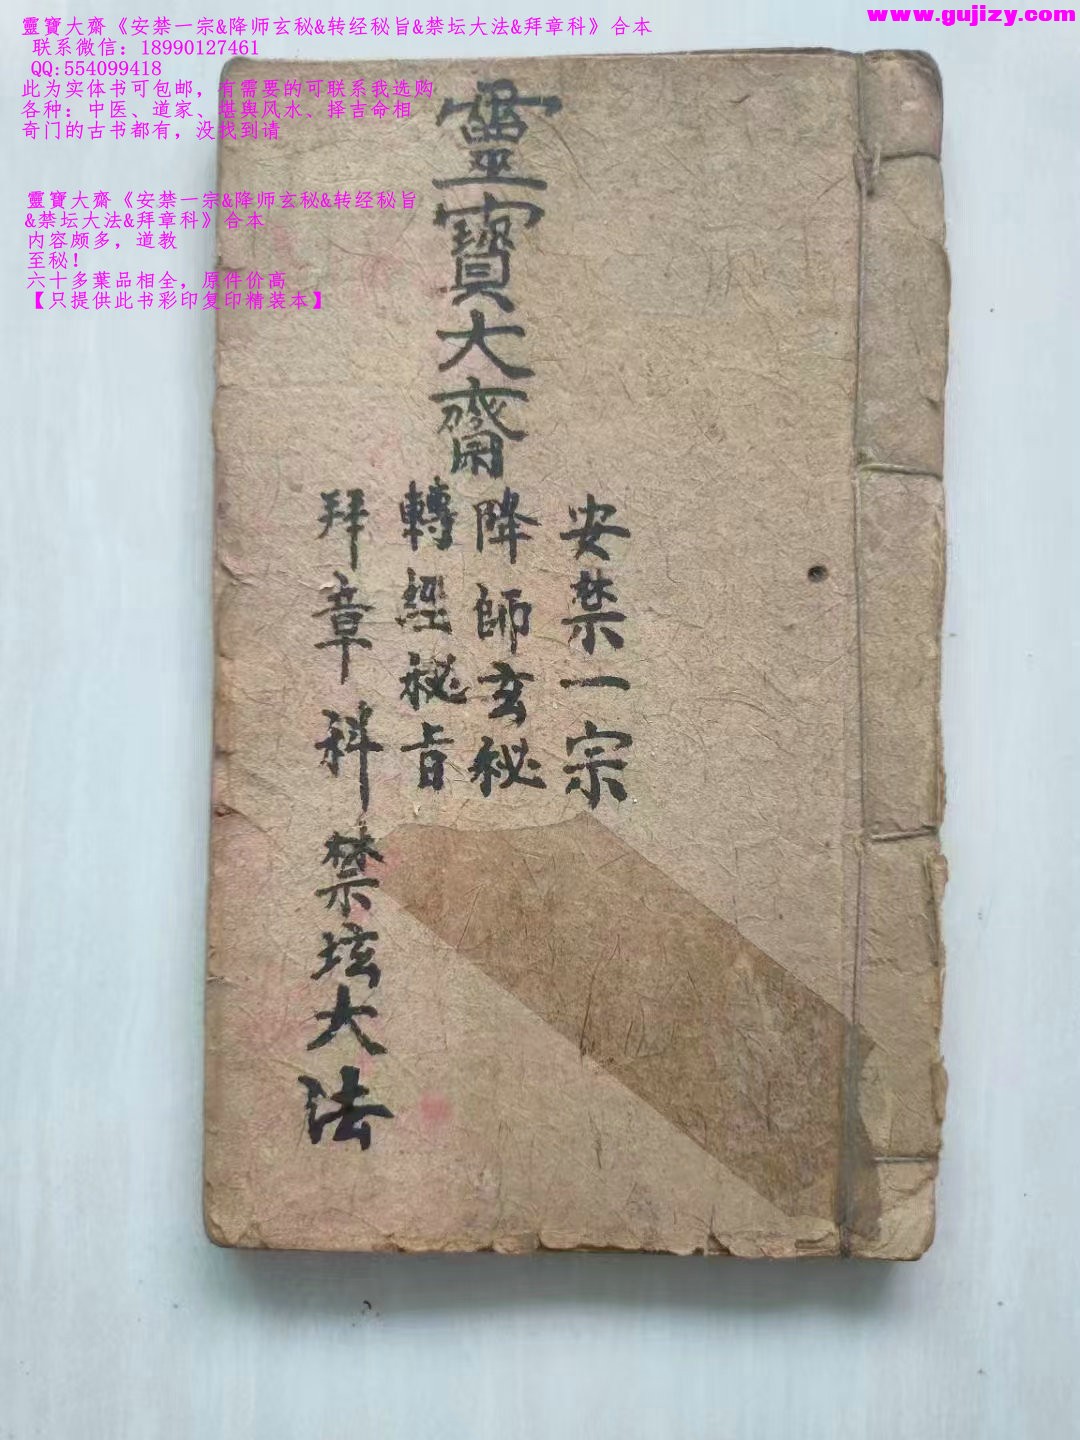 靈寶大齋《安禁一宗&降师玄秘&转经秘旨&禁坛大法&拜章科》合本
联系微信：18990127461
QQ:554099418
此为实体书可包邮，有需要的可联系我选购
各种：中医、道家、堪舆风水、择吉命相
奇门的古书都有，没找到请
www.gujizy.com
靈寶大齋《安禁一宗&降师玄秘&转经秘旨
&禁坛大法&拜章科》合本
内容颇多，道教
至秘！
六十多葉品相全，原件价高
【只提供此书彩印复印精装本】
靈寶大齋
安禁一宗
降師玄秘
轉經秘旨
拜章科禁坛大法